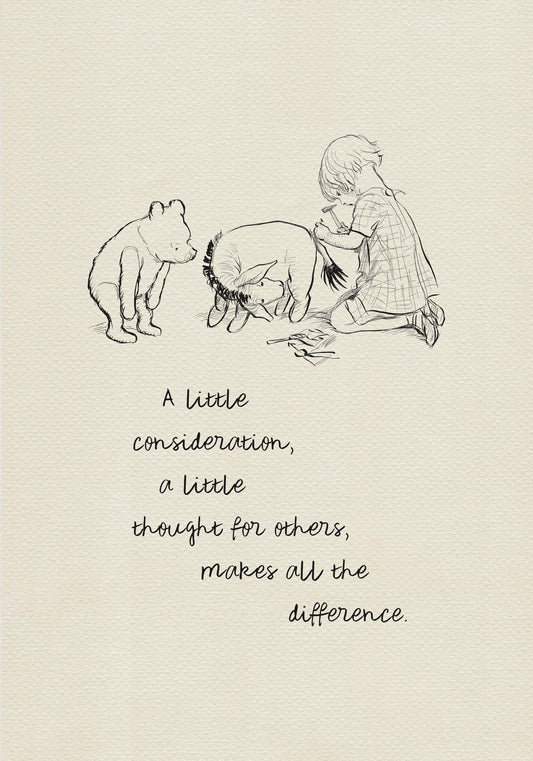 A little
consideration,
a little
thought for others,
makes all the
difference.